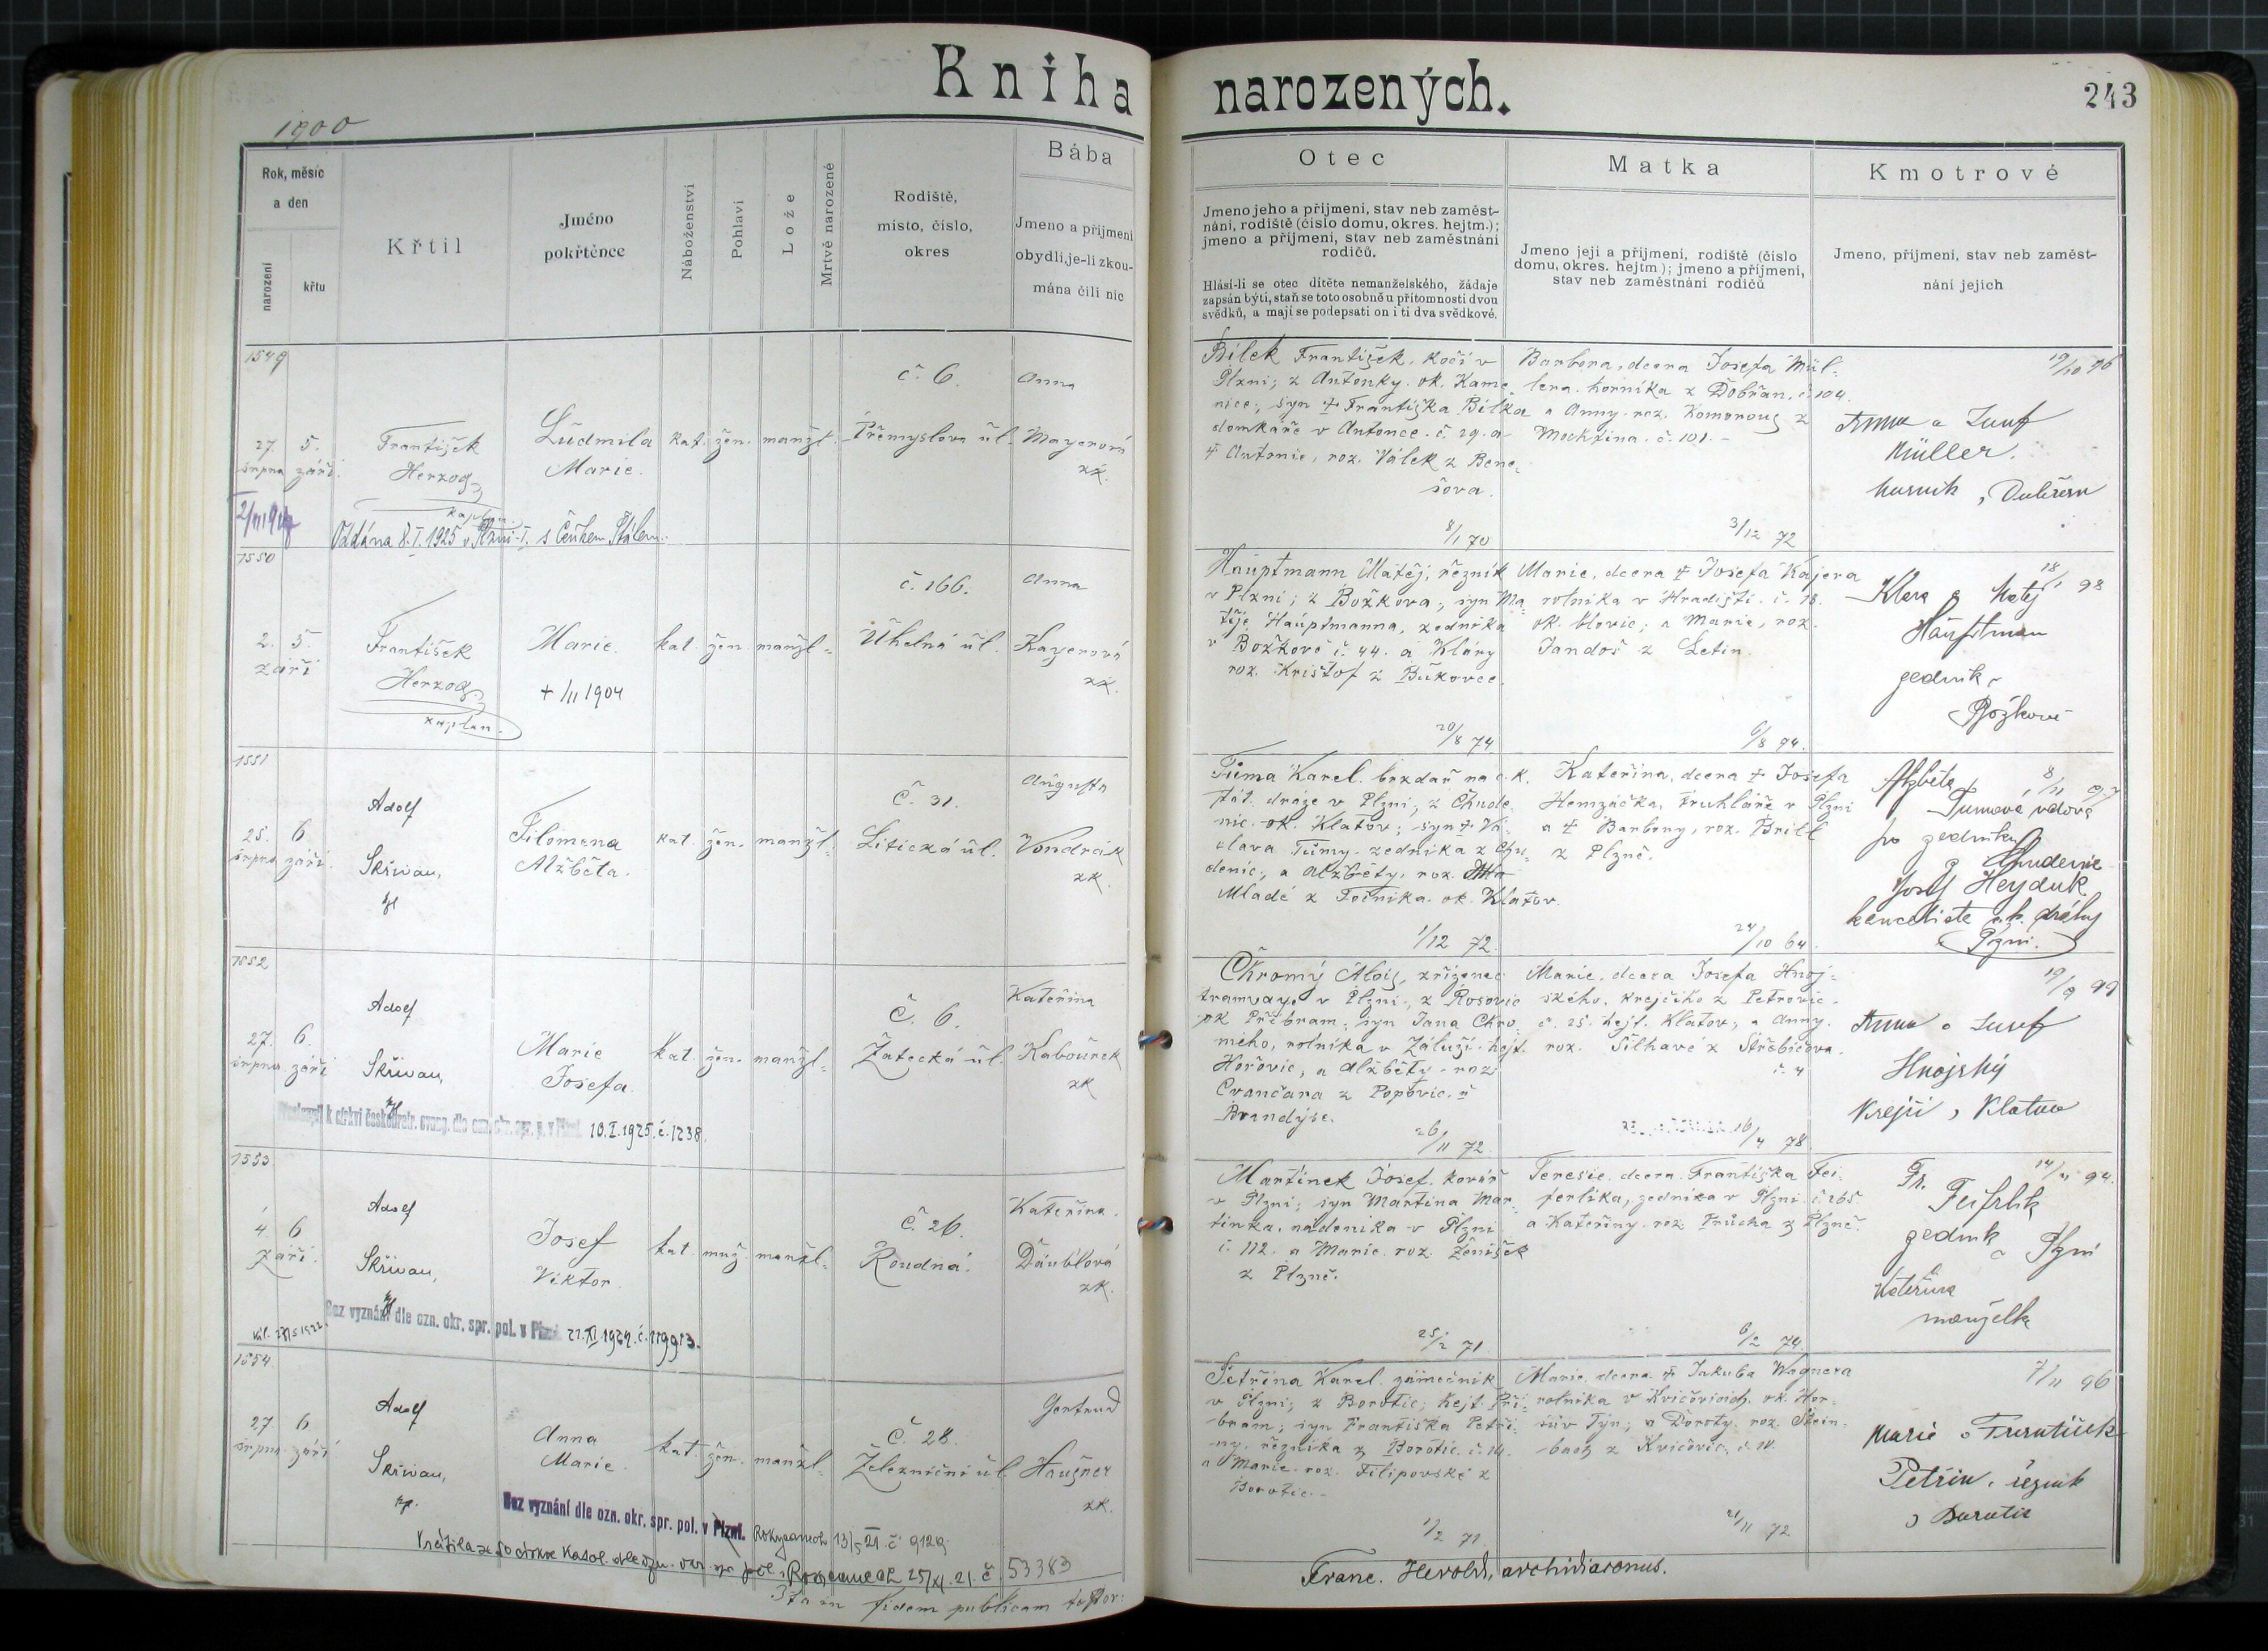 Kniha narozených.
243
1900
Rok, měsíc
a den
narození
křtu
Křtil
Jméno
pokřtěnce
Náboženství
Pohlaví
Lože
Mrtvě narozené
Rodiště,
místo, číslo,
okres
Bába
Jmeno a příjmení
obydlí, je-li zkou-
mána čili nic
Otec
Jmeno jeho a příjmení, stav neb zaměst-
nání, rodiště (číslo domu, okres. hejtm.);
jmeno a příjmení, stav neb zaměstnání
rodičů.
Hlásí-li se otec dítěte nemanželského, žádaje
zapsán býti, staň se toto osobně u přítomnosti dvou
svědků, a mají se podepsati on i ti dva svědkové.
Matka
Jmeno její a příjmení, rodiště (číslo
domu, okres. hejtm.); jmeno a příjmení,
stav neb zaměstnání rodičů
Kmotrové
Jméno, příjmení, stav neb zaměst-
nání jejich
1549
27. 5.
srpna září
František
Herzog
Ludmila
Marie.
kat. žen. manžl.
č. 6.
Přemyslova ul.
Anna
Mayerová
zk.
Oddána 8.I.1925 v Plzni-I. s Čeňkem
Bílek František, kočí v
Plzni; z Antonky. ok. Kame
nice; syn † Františka Bílka
domkáře v Antonce. č. 29. a
† Antonie, roz. Válek z Bene
šova.
8/1 70
Barbora, dcera Josefa Mül-
lera. horníka z Dobřan. č. 104.
a Anny. roz. Komorous z
Mochtína. č. 101.
3/12 72
19/10 96
Anna a Josef
Müller.
horník, Dobřan
1550
2. 5.
září
František
Herzog
kaplan.
Marie.
+ /II 1904
kat. žen. manžl.
č. 166.
Úhelná ul.
Anna
Kayerová
zk.
Hauptmann Matěj, řezník
v Plzni; z Božkova; syn Ma
těje Hauptmanna, zedníka
v Božkově č. 44. a Kláry
roz. Krištof z Bukovce.
20/8 74
Marie, dcera † Josefa Kajera
rolníka v Hradišti. č. 18.
ok. Blovic; a Marie, roz.
Jandoš z Letin.
6/8 94.
18/1 98
Klara a Matěj
Hauptman
zedník
Božkově
1551
25. 6.
srpna září
Adolf
Skřivan,
Filomena
Alžběta.
kat. žen. manžl.
Č. 31.
Litická ul.
Augusta
Vondrák
zk.
Tůma Karel. brzdař na c. k.
stát. dráze v Plzni; z Chude
nic. ok. Klatov; syn † Vá-
clava Tůmy. zedníka z Chu-
denic; a Alžběty, roz.
Mladé z Točníka. ok. Klatov.
1/12 72.
Kateřina, dcera † Josefa
Hemzáčka, truhláře v Plzni
a † Barbory, roz. Brill
z Plzně.
24/10 64.
Alžběta
Tumová vdova
po zedníku
Chudenic
Josef Heyduk
Plzni.
1552
27. 6.
srpna září
Adolf
Skřivan,
Marie
Josefa.
kat. žen. manžl.
Č. 6.
Žatecká ul.
Kateřina
Kabourek
zk
10.I.1925. č. 1238.
Chromý Alois, zřízenec
tramvaye v Plzni; z Rosovic
ok Příbram; syn Jana Chro-
mého, rolníka v Záluží. hejt.
Hořovic, a Alžběty. roz
Cvančara z Popovic. u
Brandýse.
26/11 72.
Marie, dcera Josefa Hnoj-
ského, krejčího z Petrovic.
č. 25. hejt. Klatov, a Anny.
roz. Šilhavé z Střebíčova.
č. 4
16/4 78
19/9 99
Anna a Josef
Hnojský
Krejčí, Klatov
1553
4. 6
září.
Adolf
Skřivan,
Josef
Viktor.
kat. muž. manžl.
Č. 26.
Roudná.
Kateřina.
Däublová
zk.
Bez vyznání dle ozn. okr. spr. pol. v Plzni 21.XI.1924. č. 119913.
Martínek Josef. kovář
v Plzni; syn Martina Mar-
tínka, nádeníka v Plzni
č. 112. a Marie. roz. Ženíšek
z Plzně.
25/2 71.
Teresie. dcera. Františka Fei-
ferlíka, zedníka v Plzni. č. 265
a Kateřiny. roz Průcha z Plzně.
6/2 74.
Fr.
Feiferlik
zedník
Plzni
Kateřina
manželka
1554
27. 6
srpna září
Adolf
Skřivan,
Anna
Marie.
kat. žen. manžl.
Č. 28.
Železniční ul
Gertrud
Hausner
zk.
Bez vyznání dle ozn. okr. spr. pol. v Plzni. Rokycanech 13/5 21. č. 9129
Vrátila se do církve katol. Rokycanech 25/XI. 21. č. 53383
Petřina Karel. zámečník
v Plzni; z Borotic; hejt. Pří-
bram; syn Františka Petři-
ny, řezníka z Borotic. č. 14.
a Marie. roz. Filipovské z
Borotic.
1/2 71.
Marie, dcera † Jakuba Wagnera
rolníka v Kvíčovicích. ok. Hor-
šův Týn; a Doroty. roz. Stein-
bach z Kvíčovic. č. 10.
21/11 72
7/11 96
Marie a František
Petřina. řezník
z Borotic
Ita in fidem publicam testor:
Franc. Herold, archidiaconus.